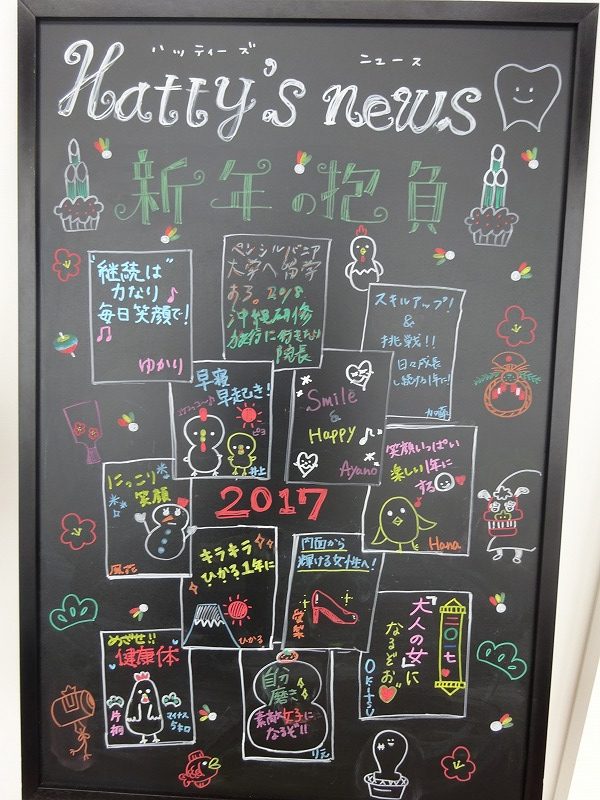 ハッティーズ ニュース
Hatty's news
新年の抱負
"継続は"
力なり♪
毎日笑顔で!
ゆかり
ペンシルバニア
大学へ留学
ある。2018
沖縄研修
旅行に行きたい
院長
スキルアップ!
&
挑戦!!
日々成長
し続ける1年に!
加藤
早寝
早起き!
コケコッコー♪
ピヨ
井上
Smile
&
Happy
Ayano
笑顔いっぱい
楽しい1年に
する
Hana
にっこり
笑顔
風花
2017
キラキラ
ひかる1年に
ひかる
内面から
輝ける女性へ!
「大人の女」に
なるぞお
OKITSU
二〇一七
めざせ!!
健康体
マイナス
5キロ
片桐
自分
磨き
素敵女子に
なるぞ!!
りえ